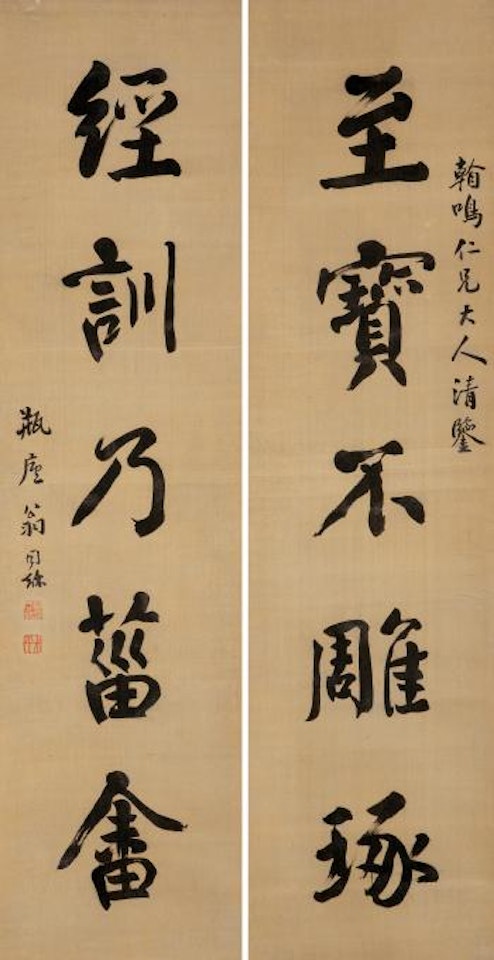 翰鳴仁兄大人清鑒
至寶不雕琢
經訓乃菑畬
瓶廬翁同龢